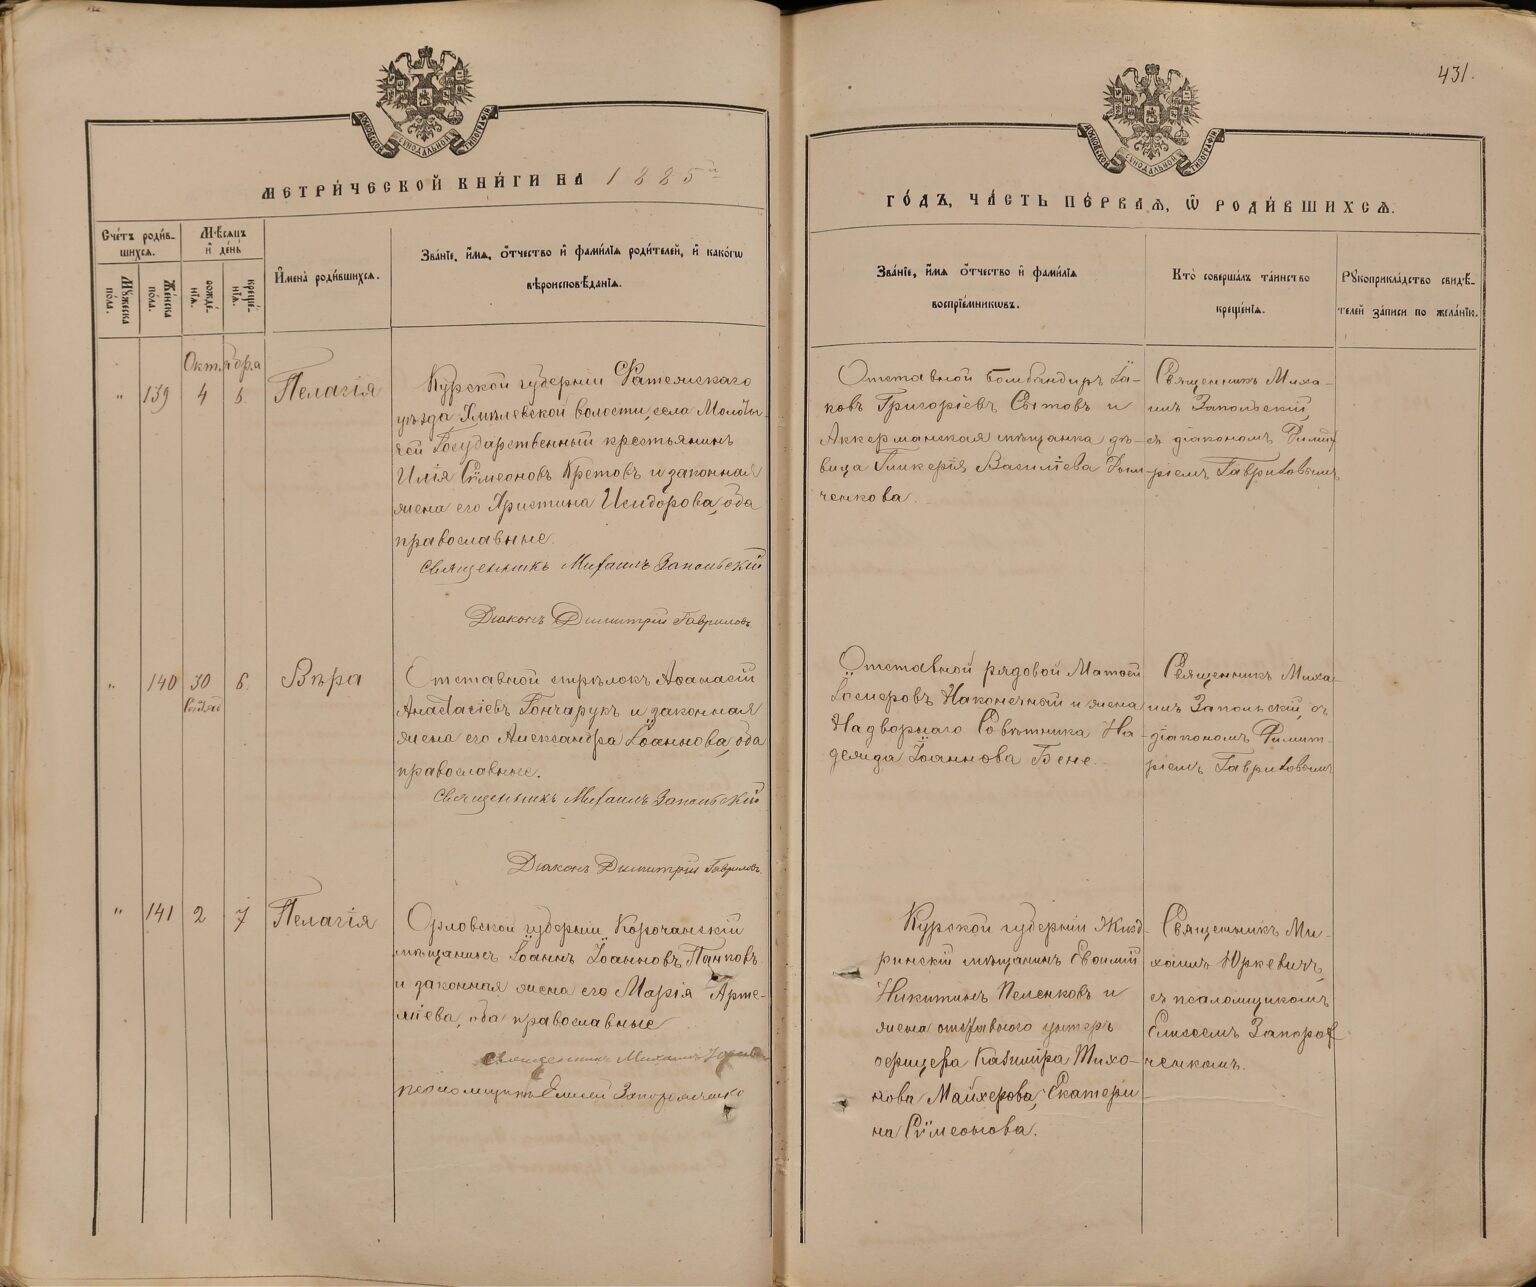 431.
МОСКОВСКОЙ СѴНОДАЛЬНОЙ ТИПОГРАФІИ
МОСКОВСКОЙ СѴНОДАЛЬНОЙ ТИПОГРАФІИ
МЕТРИ́ЧЕСКОЙ КНИ́ГИ НА 1885й
ГО́ДЪ, ЧА́СТЬ ПЕ́РВАѦ, Ѽ РОДИ́ВШИХСѦ.
Сче́тъ роди́в-
шихсѧ.
Мѣ́сѧцъ
и҆ де́нь
Мꙋ́жеска
по́ла.
Же́нска
по́ла.
рожде́-
нїѧ.
креще́-
нїѧ.
И҆мена̀ роди́вшихсѧ.
Зва́нїе, и҆́мѧ, ѻ҆́тчество и҆ фамѝлїѧ роди́телей, и҆ како́гѡ
вѣроисповѣ́данїѧ.
Зва́нїе, и҆́мѧ ѻ҆́тчество и҆ фами́лїѧ
воспрїе́мникѡвъ.
Кто̀ соверша́лъ та́инство
креще́нїѧ.
Рꙋкоприкла́дство свидѣ́-
телей за́писи по жела́нїю.
Октября
" 139 4 6 Пелагія
Курской губерніи Фатежскаго
уѣзда, Хмѣлевской волости, села Молоты-
чей Государственный крестьянинъ
Илія Сѵмеоновъ Кретовъ и законная
жена его Христина Исидорова, оба
православные.
Священникъ Михаилъ Запольскій
Діаконъ Димитрій Гавриловъ
Отставной Бомбандиръ Іа-
ковъ Григоріевъ Сытовъ и
Аккерманская мѣщанка дѣ-
вица Гликерія Василіева
ченкова.
Священникъ Миха-
илъ Запольскій,
съ діакономъ Димит-
ріемъ Гавриловымъ
" 140 30 6. Вѣра
Отставной стрѣлокъ Аѳанасій
Анастасіевъ Гончарукъ и законная
жена его Александра Іоаннова, оба
православные.
Священникъ Михаилъ Запольскій
Діаконъ Димитрій Гавриловъ
Отставной рядовой Матѳей
Наконечный и жена
Надворнаго Совѣтника На-
дежда Іоаннова Бене.
Священникъ Миха-
илъ Запольскій, съ
діакономъ Димит-
ріемъ Гавриловымъ
" 141 2 7 Пелагія
Орловской губерніи, Корочанскій
мѣщанинъ Іоаннъ Іоанновъ Панковъ
и законная жена его Марія Арте-
міева, оба православные
Священникъ Михаилъ Юркевичъ
псаломщикъ Елисей Запорожченко
Курской губерніи Жизд-
ринскій мѣщанинъ Евѳимій
Никитинъ Пеленковъ и
жена отставного унтеръ
офицера Казиміра Тихо-
нова Майхерова, Екатери-
на Сѵмеонова.
Священникъ Ми-
хаилъ Юркевичъ,
съ псаломщикомъ
Елисеемъ Запорож-
ченкомъ.